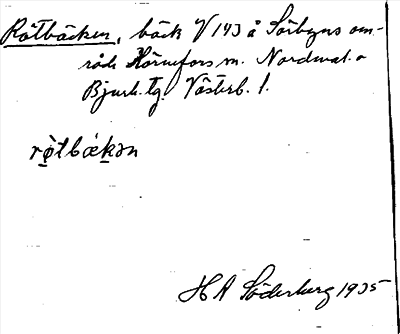 Rötbäcken, bäck V 143 å Sörbyns om-
råde Hörnefors sn. Nordmal. o
Bjurh. tg. Västerb. l.
rötbäkən
HA Söderberg 1935